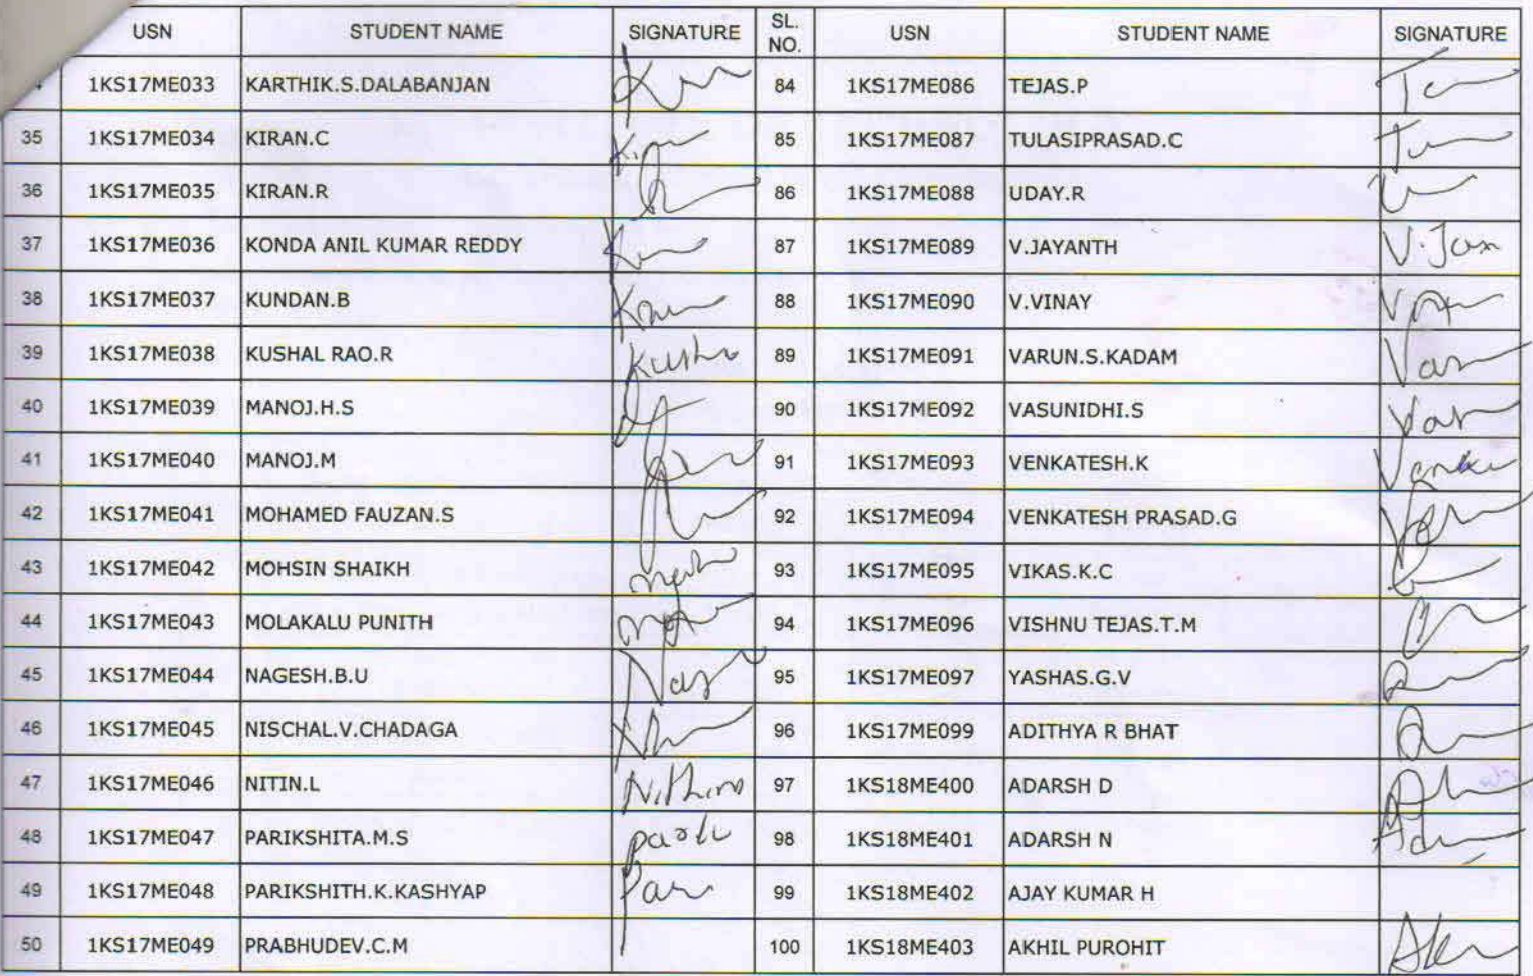 USN STUDENT NAME SIGNATURE SL. NO. USN STUDENT NAME SIGNATURE
1KS17ME033 KARTHIK.S.DALABANJAN 84 1KS17ME086 TEJAS.P
35 1KS17ME034 KIRAN.C 85 1KS17ME087 TULASIPRASAD.C
36 1KS17ME035 KIRAN.R 86 1KS17ME088 UDAY.R
37 1KS17ME036 KONDA ANIL KUMAR REDDY 87 1KS17ME089 V.JAYANTH
38 1KS17ME037 KUNDAN.B 88 1KS17ME090 V.VINAY
39 1KS17ME038 KUSHAL RAO.R 89 1KS17ME091 VARUN.S.KADAM
40 1KS17ME039 MANOJ.H.S 90 1KS17ME092 VASUNIDHI.S
41 1KS17ME040 MANOJ.M 91 1KS17ME093 VENKATESH.K
42 1KS17ME041 MOHAMED FAUZAN.S 92 1KS17ME094 VENKATESH PRASAD.G
43 1KS17ME042 MOHSIN SHAIKH 93 1KS17ME095 VIKAS.K.C
44 1KS17ME043 MOLAKALU PUNITH 94 1KS17ME096 VISHNU TEJAS.T.M
45 1KS17ME044 NAGESH.B.U 95 1KS17ME097 YASHAS.G.V
46 1KS17ME045 NISCHAL.V.CHADAGA 96 1KS17ME099 ADITHYA R BHAT
47 1KS17ME046 NITIN.L Nithin 97 1KS18ME400 ADARSH D
48 1KS17ME047 PARIKSHITA.M.S 98 1KS18ME401 ADARSH N
49 1KS17ME048 PARIKSHITH.K.KASHYAP 99 1KS18ME402 AJAY KUMAR H
50 1KS17ME049 PRABHUDEV.C.M 100 1KS18ME403 AKHIL PUROHIT